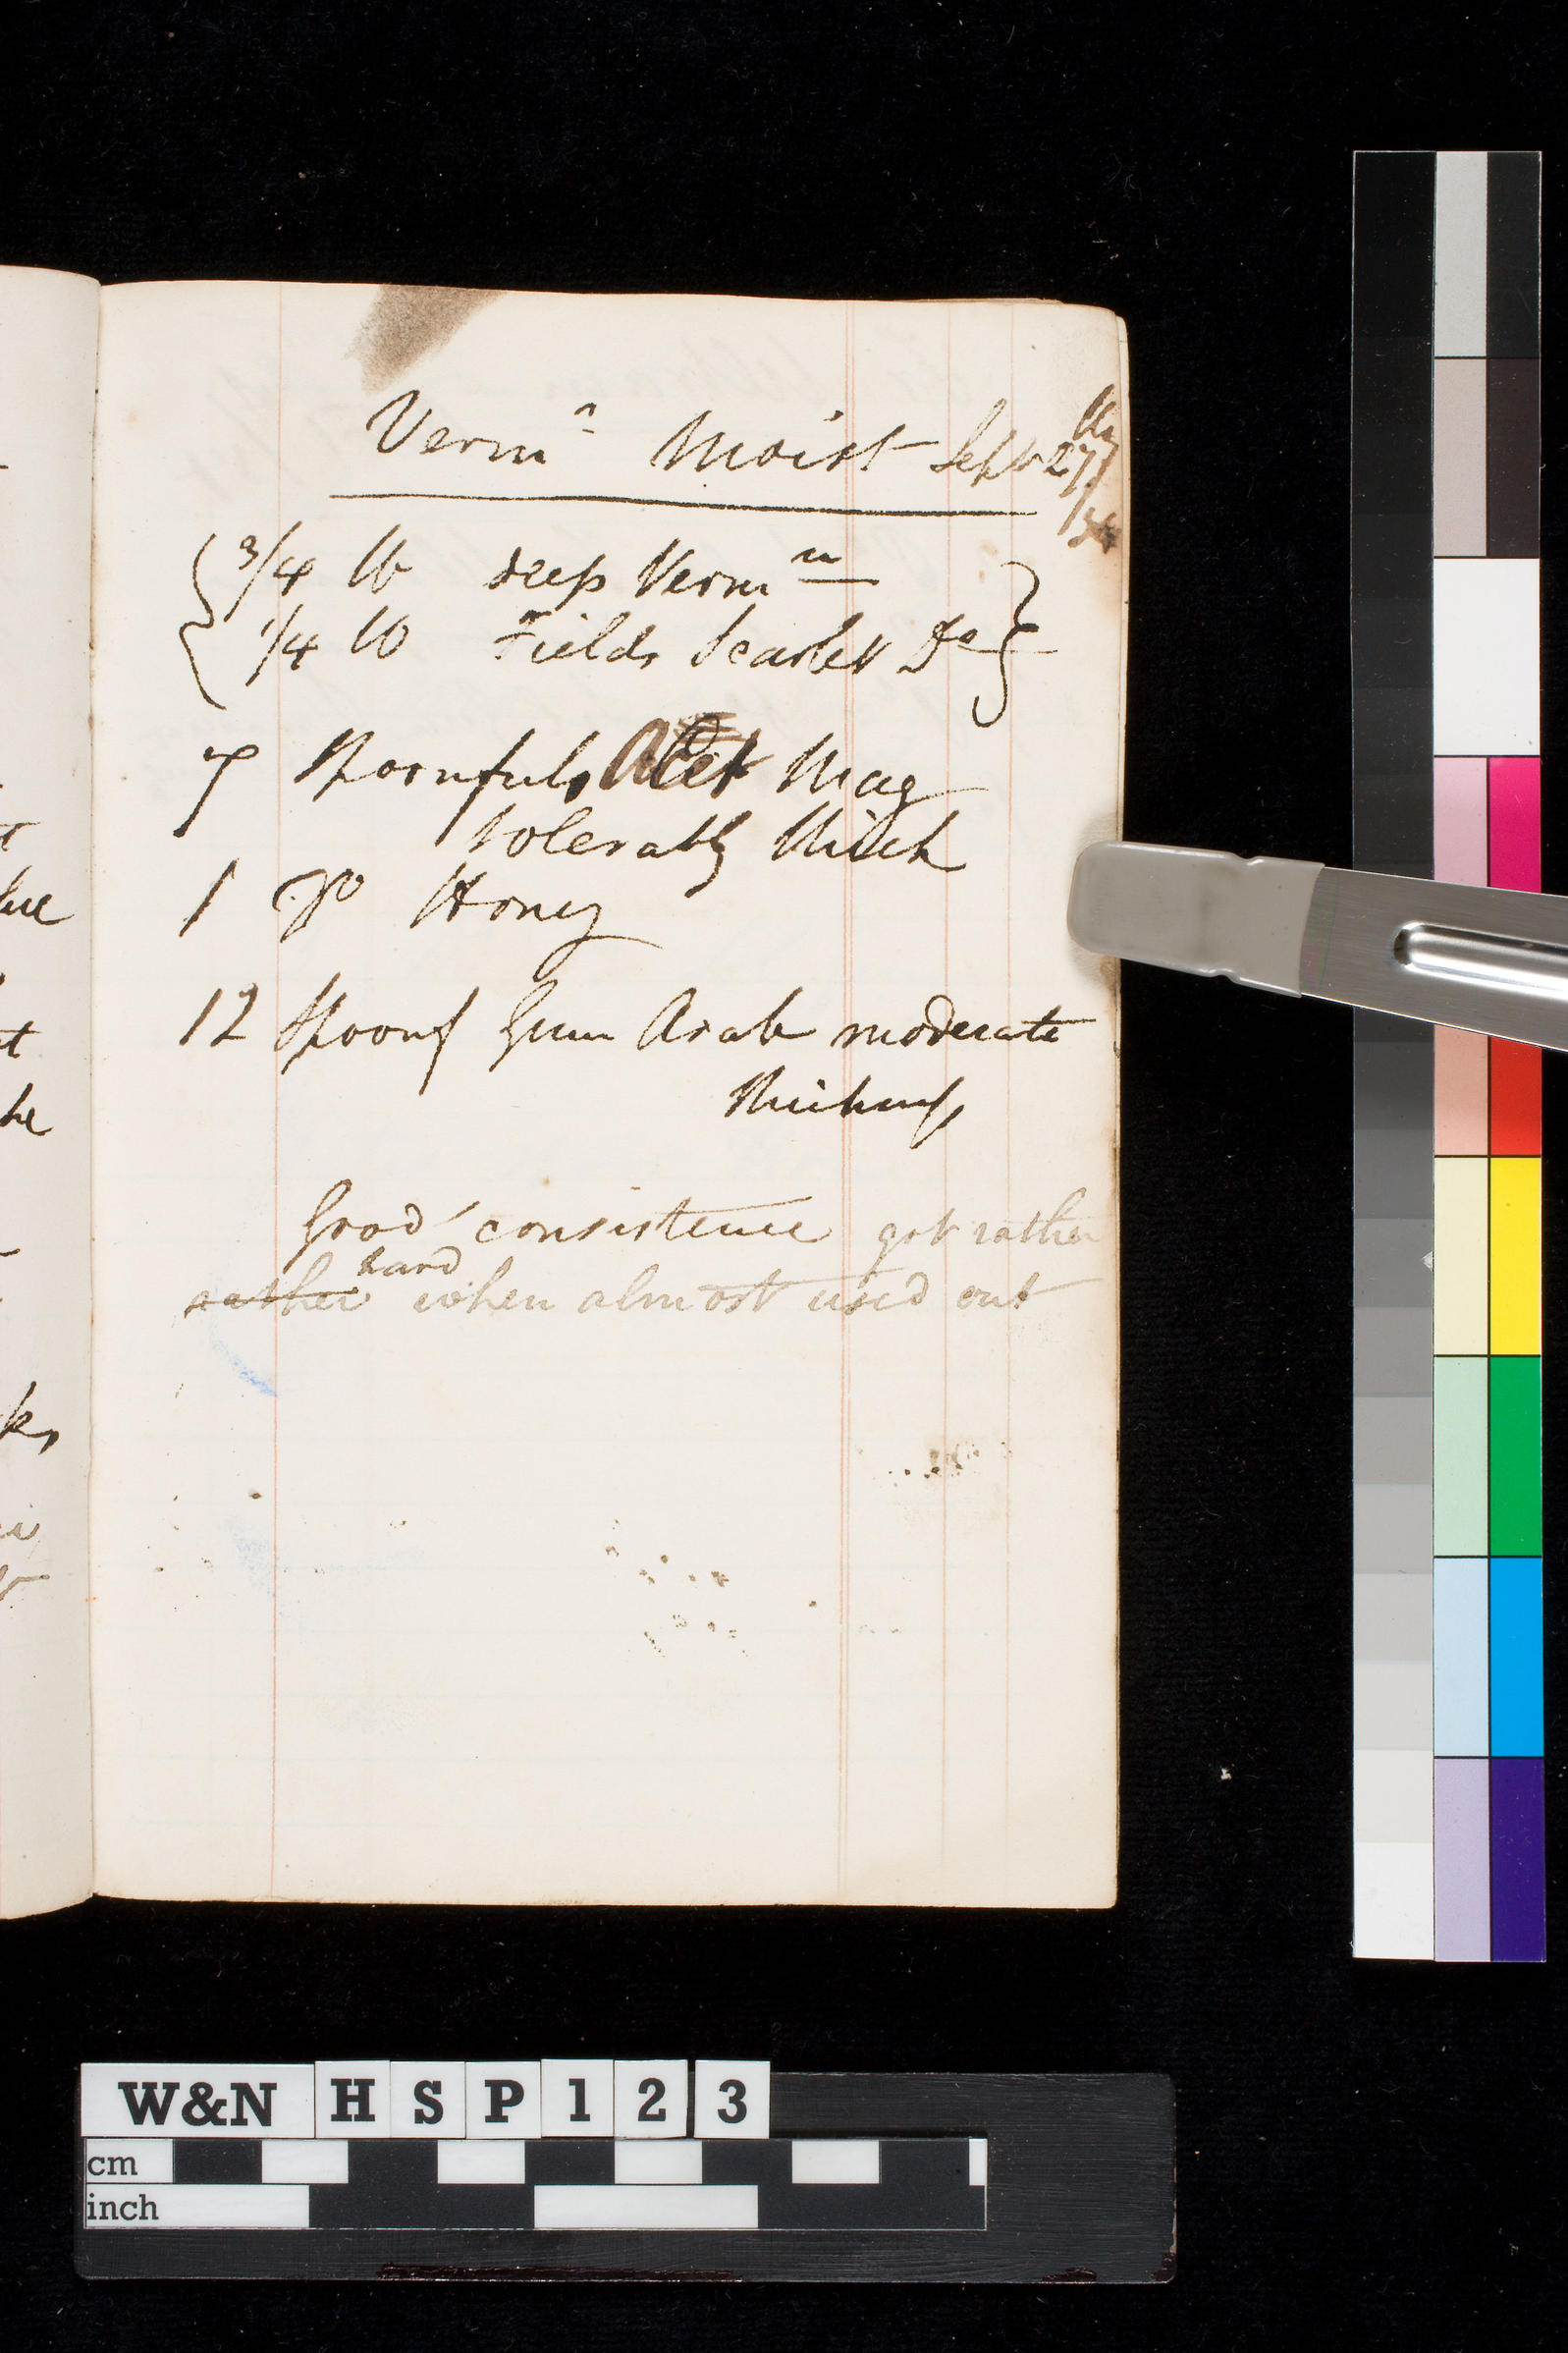 Vermn Moist Septr 27th/34
3/4 lb deep Vermn
1/4 lb Fields Scarlet Do
7 Spoonfuls Acet Mag
tolerably thick
1 Do Honey
12 Spoonf Gum Arab moderate
thickness
Good consistence got rather
hard
rather when almost used out
W&N HSP123
cm
inch